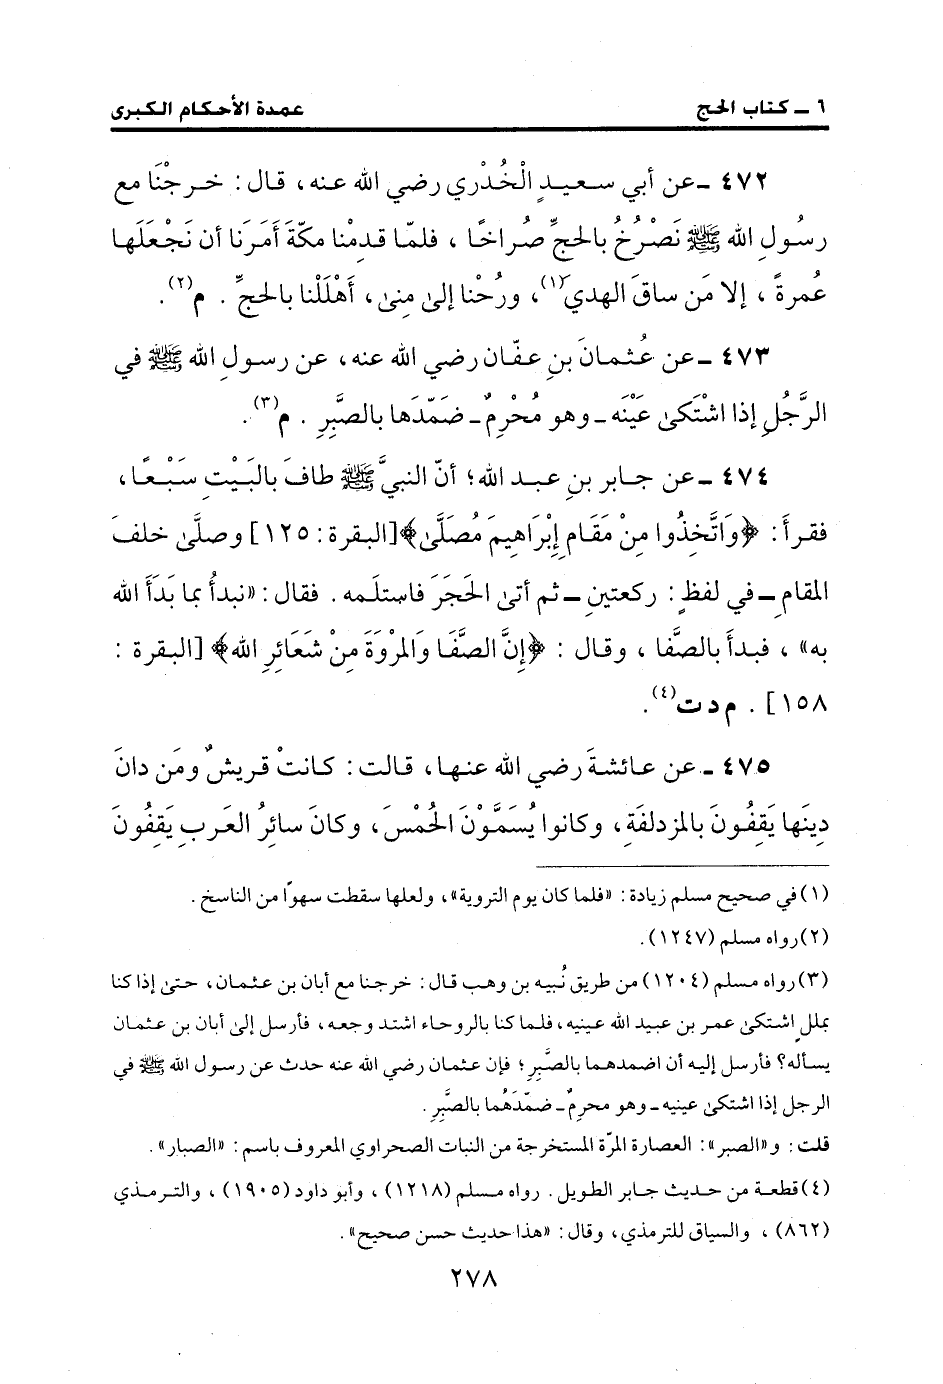 ٦ ــ كتاب الحج
عمدة الأحكام الكبرى
٤٧٢ ـ عن أبي سعيدٍ الْخُدْري رضي الله عنه، قال: خرجْنَا مع
رسُولِ الله ﷺ نَصْرُخُ بالحجِّ صُراخًا، فلمّا قدِمْنا مكّةَ أَمَرَنا أن نَجْعَلَها
عُمرةً، إلا مَن ساقَ الهدي(١)، ورُحْنا إلىٰ مِنىٰ، أَهْلَلْنا بالحجِّ. م(٢).
٤٧٣ ـ عن عُثمانَ بنِ عفّان رضي الله عنه، عن رسولِ الله ﷺ في
الرَّجُلِ إذا اشْتَكىٰ عَيْنَه ـ وهو مُحْرِمٌ ـ ضَمّدَها بالصَّبِرِ. م(٣).
٤٧٤ ـ عن جابرِ بنِ عبد الله؛ أنّ النبيَّ ﷺ طافَ بالبَيْتِ سَبْعًا،
فقرأَ: ﴿وَاتَّخِذُوا مِنْ مَقَامِ إِبْرَاهِيمَ مُصَلًّى﴾ [البقرة: ١٢٥] وصلَّىٰ خلفَ
المقامِ ـ في لفظٍ: ركعتينِ ـ ثم أتىٰ الحَجَرَ فاستلَمه. فقال: «نبدأُ بما بَدَأَ الله
به»، فبدأَ بالصَّفا، وقال: ﴿إِنَّ الصَّفَا وَالمْرْوَةَ مِنْ شَعَائِرِ الله﴾ [البقرة:
١٥٨]. م د ت(٤).
٤٧٥ ـ عن عائشةَ رضي الله عنها، قالت: كانتْ قريشٌ ومَن دانَ
دِينَها يَقِفُونَ بالمزدلفةِ، وكانوا يُسَمَّوْنَ الحُمْسَ، وكانَ سائِرُ العَربِ يَقِفُونَ
(١) في صحيح مسلم زيادة: «فلما كان يوم التروية»، ولعلها سقطت سهوًا من الناسخ.
(٢) رواه مسلم (١٢٤٧).
(٣) رواه مسلم (١٢٠٤) من طريق نُبيه بن وهب قال: خرجنا مع أبان بن عثمان، حتىٰ إذا كنا
بمللٍ اشتكىٰ عمر بن عبيد الله عينيه، فلما كنا بالروحاء اشتد وجعه، فأرسل إلىٰ أبان بن عثمان
يسأله؟ فأرسل إليه أن اضمدهما بالصَّبِرِ؛ فإن عثمان رضي الله عنه حدث عن رسول الله ﷺ في
الرجل إذا اشتكىٰ عينيه ـ وهو محرمٌ ـ ضمّدَهُما بالصَّبِرِ.
قلت: و«الصبر»: العصارة المرّة المستخرجة من النبات الصحراوي المعروف باسم: «الصبار».
(٤) قطعة من حديث جابر الطويل. رواه مسلم (١٢١٨)، وأبو داود (١٩٠٥)، والترمذي
(٨٦٢)، والسياق للترمذي، وقال: «هذا حديث حسن صحيح».
٢٧٨